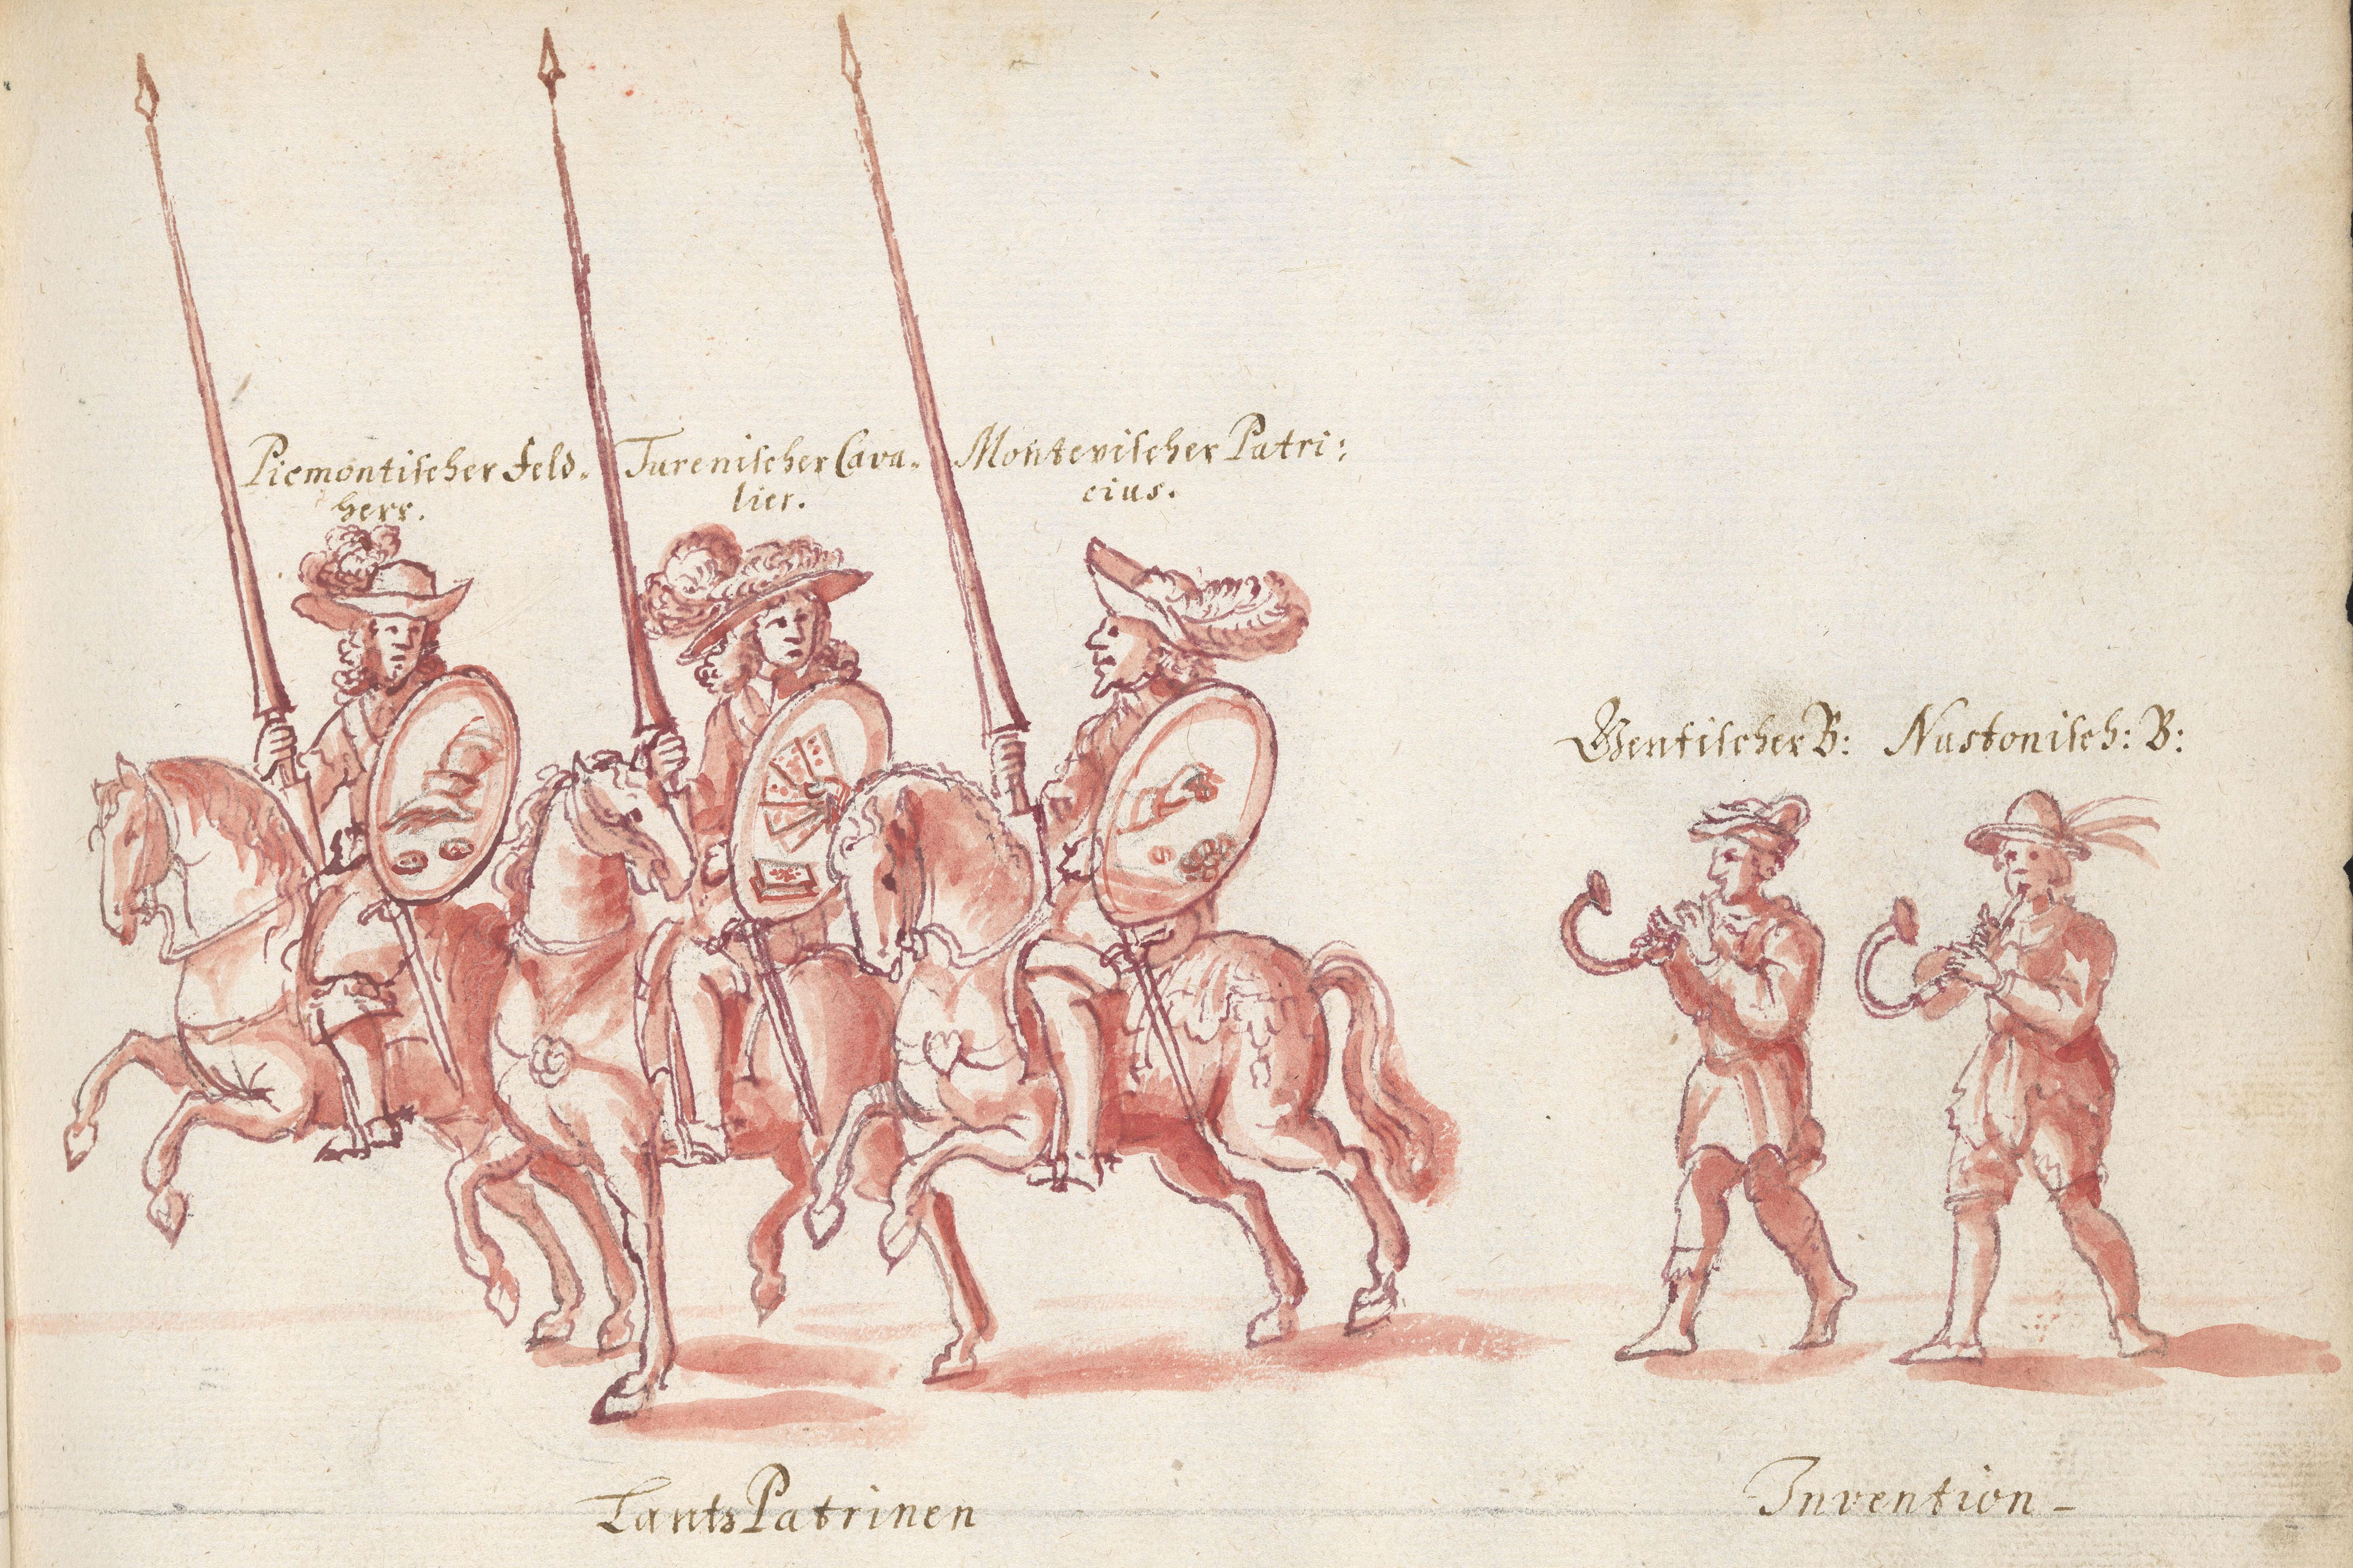 Piemontischer Feld-
herr.
Turenischer Cava-
lier.
Montevischer Patri:
cius.
Gentischer B: Nastonisch: B:
Lants Patrinen
Invention -